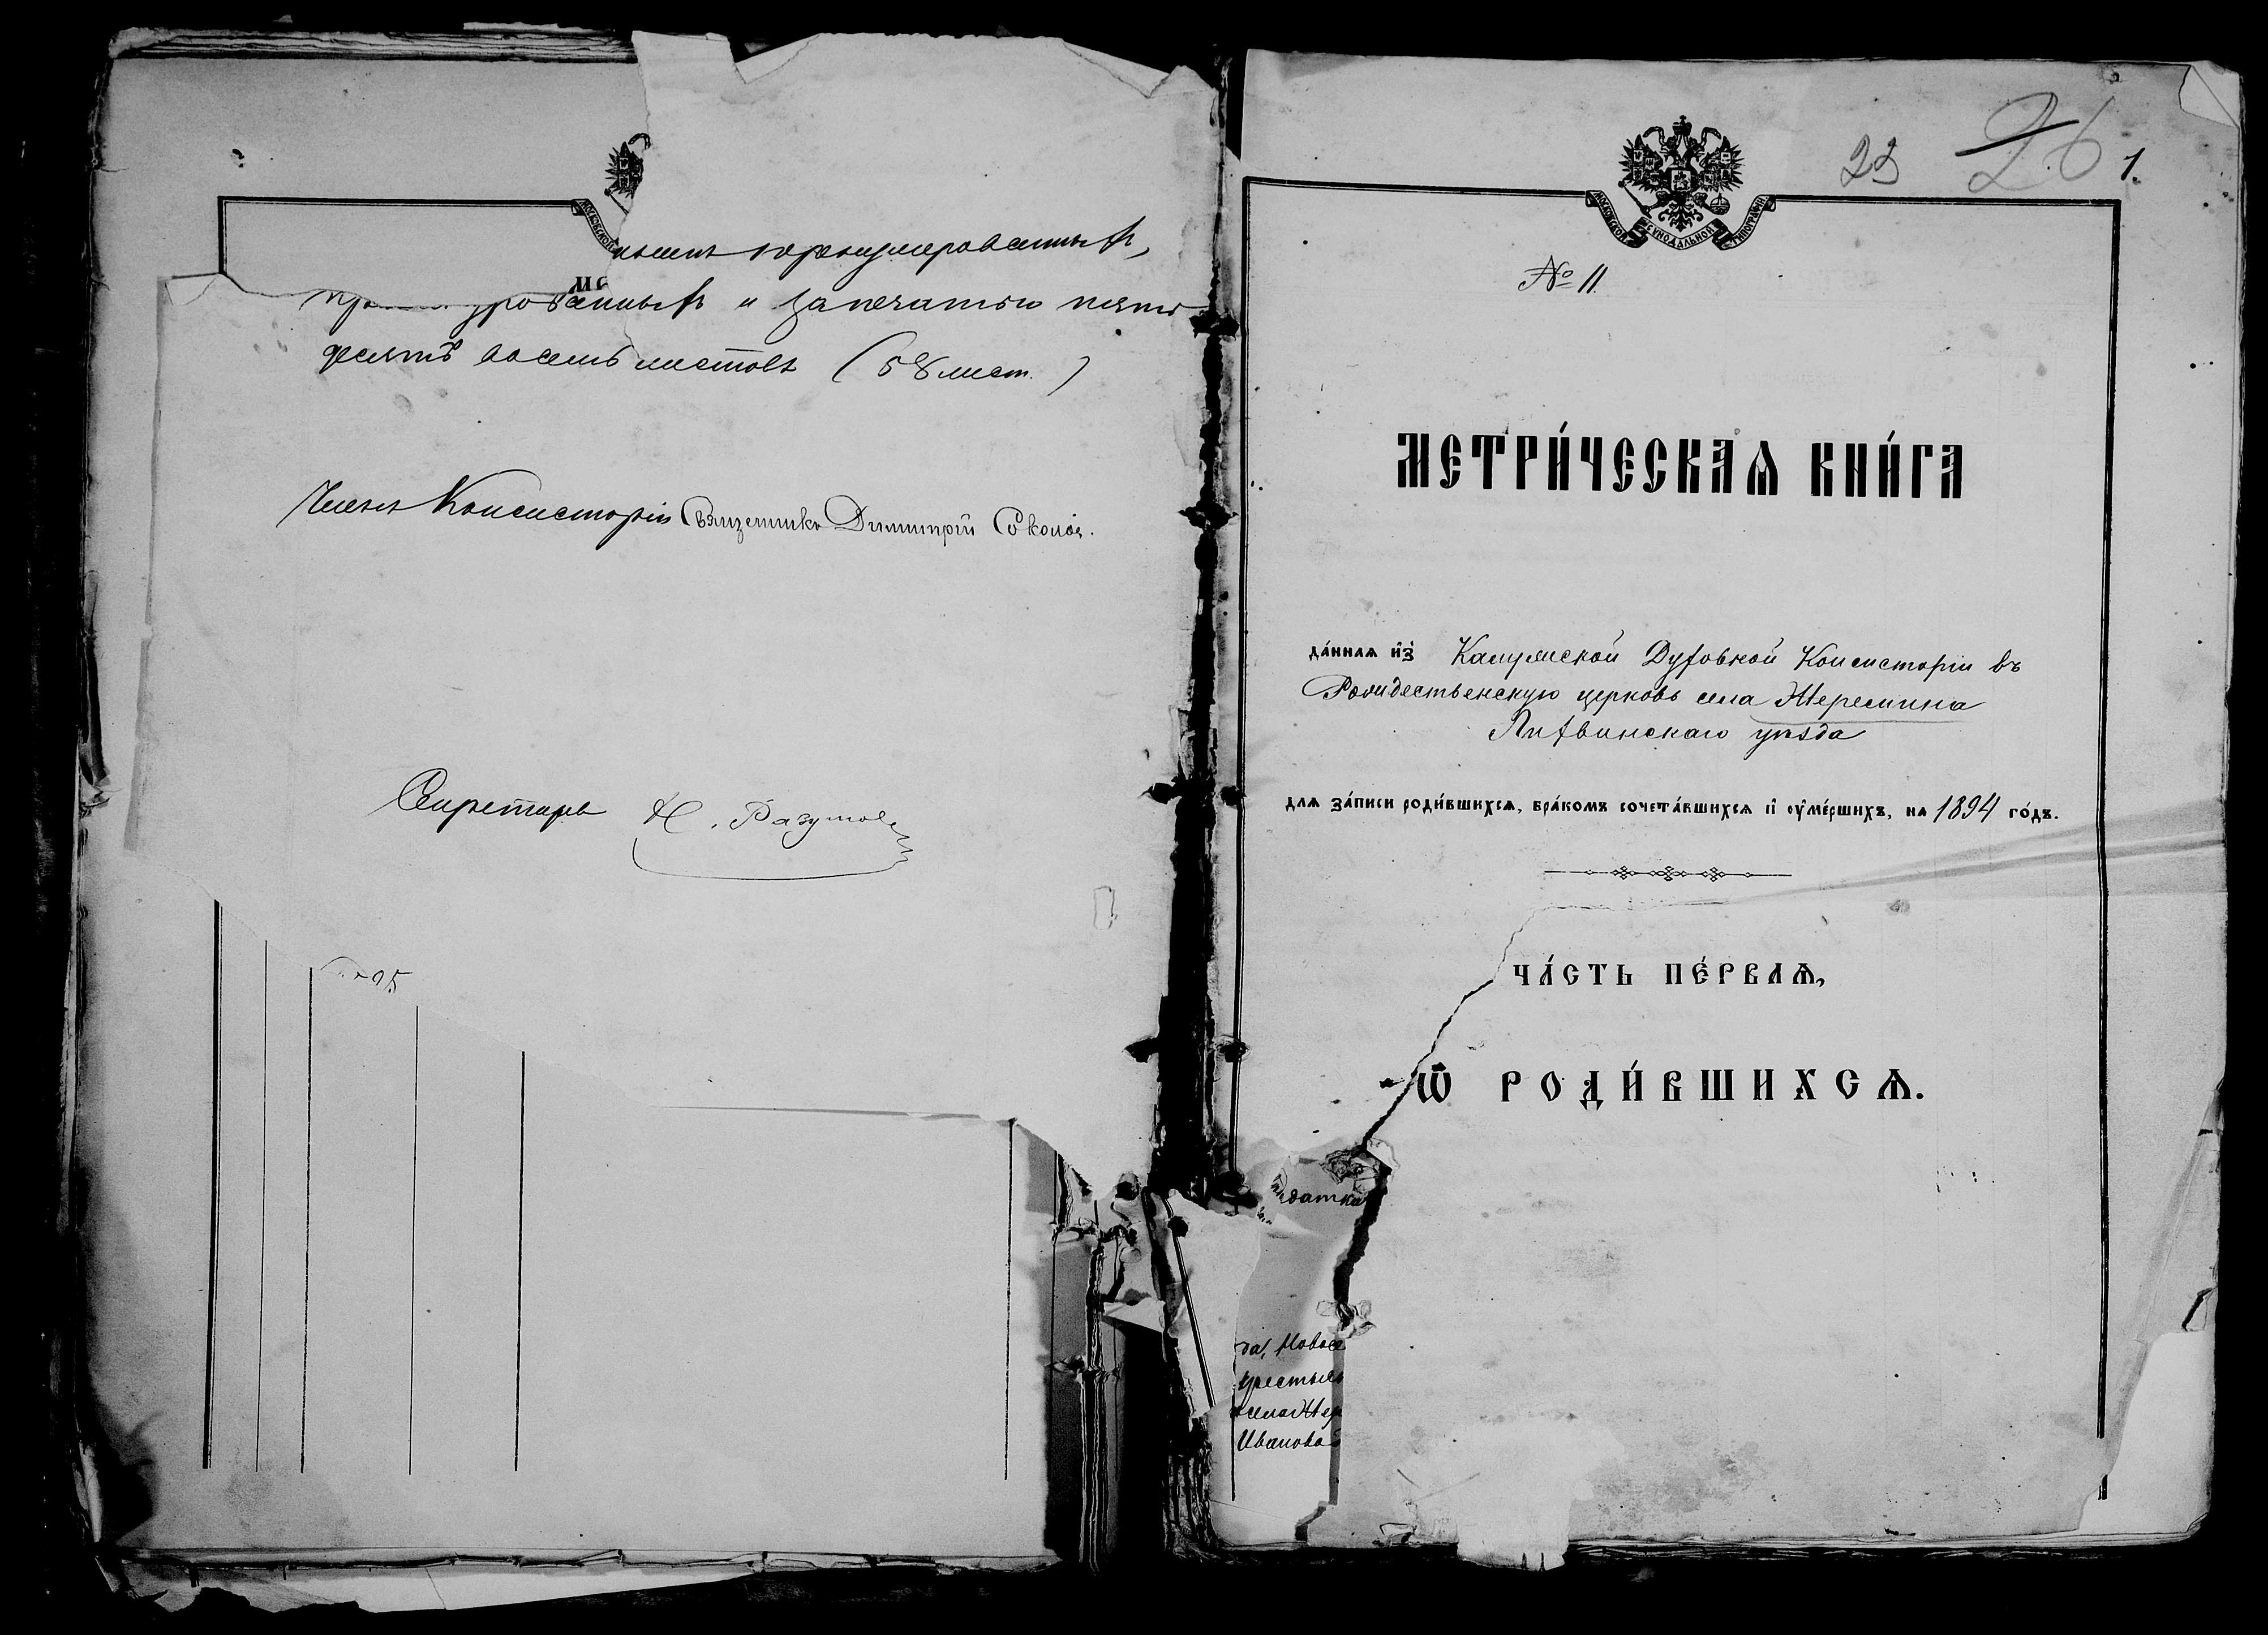 МОСКОВСКОЙ
пронумерованныхъ,
МС
и запечатью пять
десятъ восемь листовъ (58 лист.)
Членъ Консисторіи Священникъ Димитрій Соколовъ.
Секретарь Н. Разумов
23 26 1.
МОСКОВСКОЙ СѴНОДАЛЬНОЙ ТИПОГРАФІИ
№ 11.
МЕТРИ́ЧЕСКАѦ КНИ́ГА
да́ннаѧ и҆з̾ Калужской Духовной Консисторіи въ
Рождественскую церковь села Жеремина
Лихвинскаго уѣзда
для за́писи роди́вшихсѧ, бра́комъ сочета́вшихсѧ и҆ ѹ҆ме́ршихъ, на 1894 го́дъ.
ЧА́СТЬ ПЕ́РВАѦ,
Ѽ РОДИ́ВШИХСѦ.
датка
да, Новосе
крестьян
села Жер
Иванова